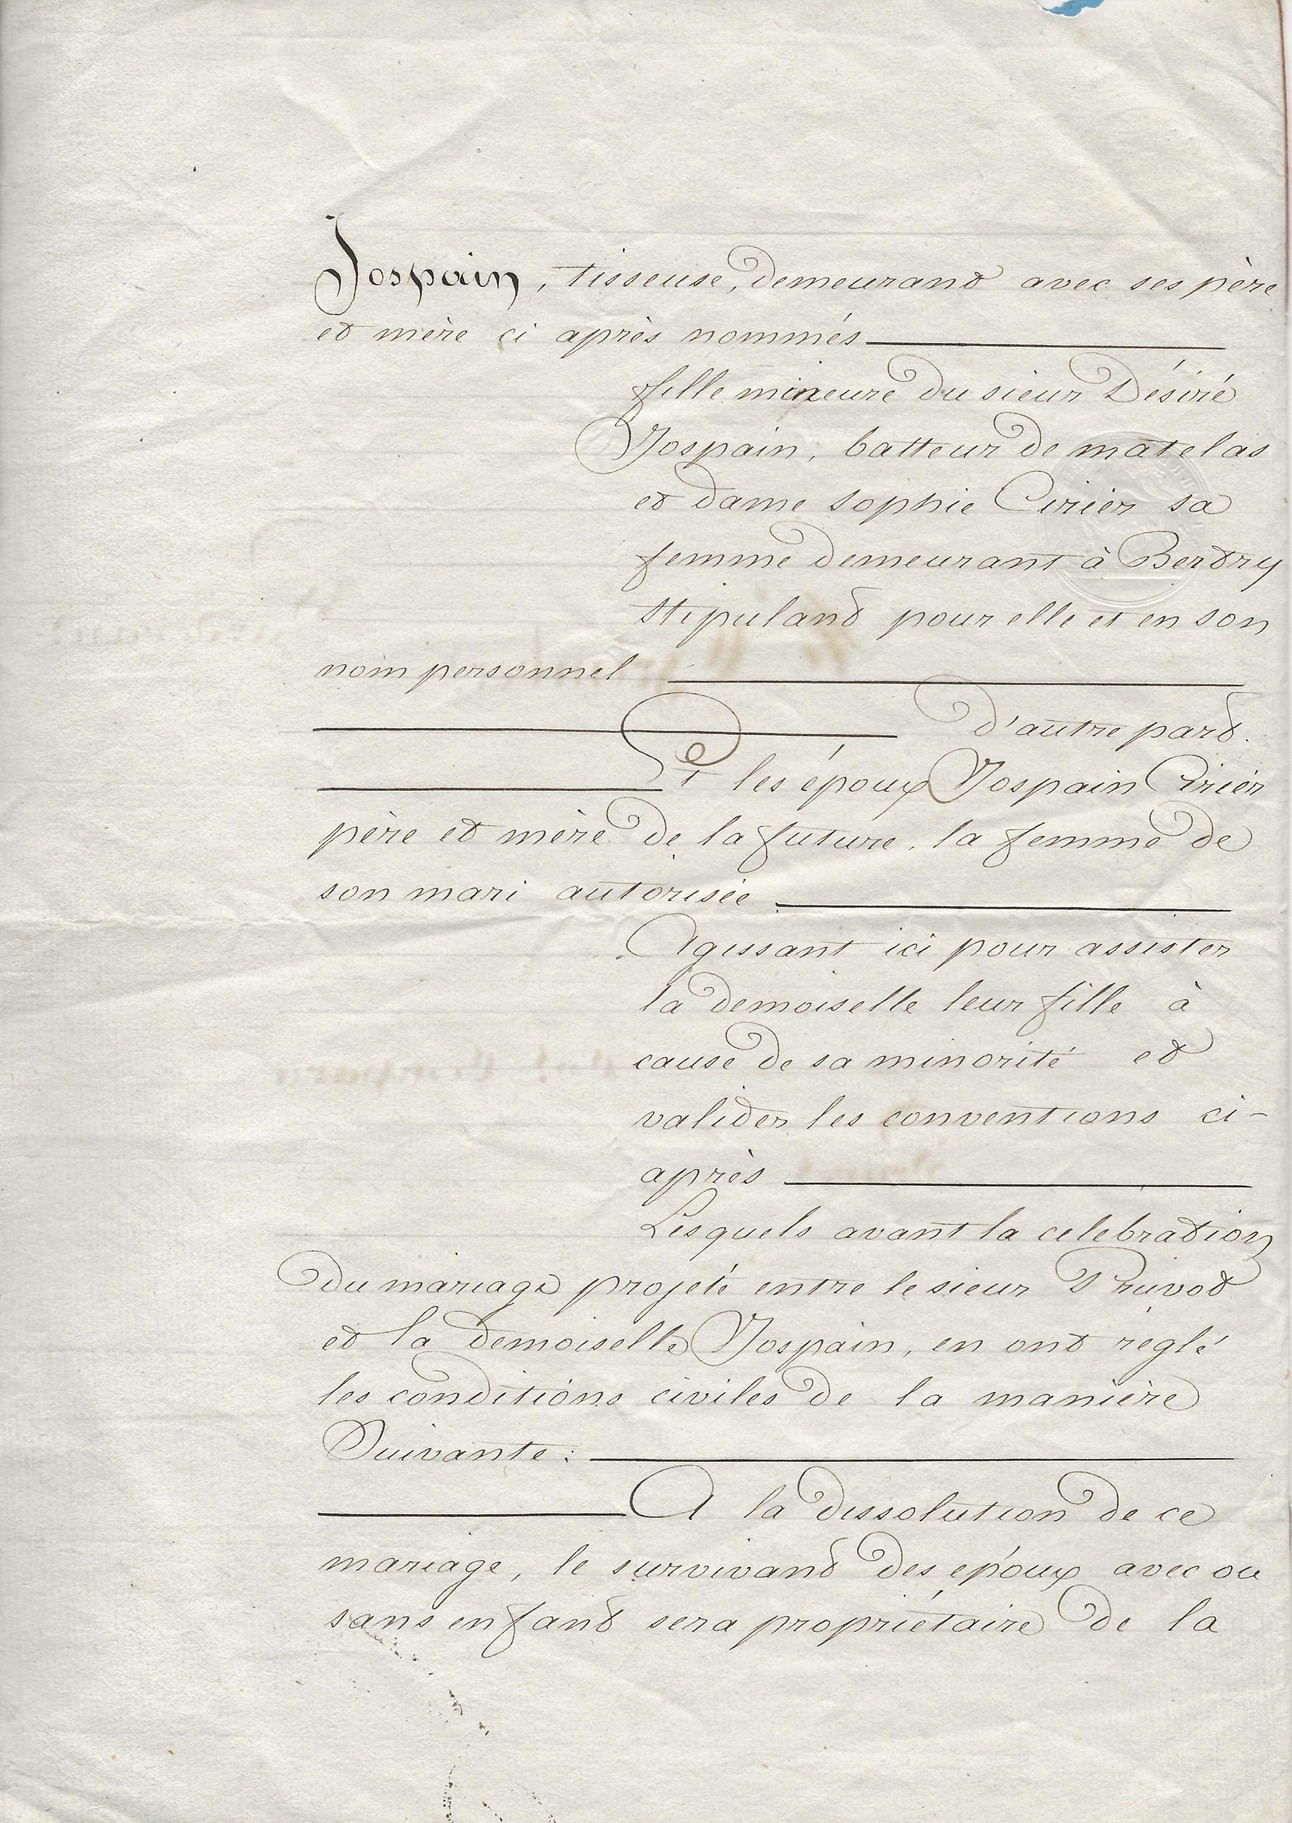 Jospain, tisseuse, demeurant avec ses père
et mère ci après nommés
fille mineure du sieur Désiré
Jospain, batteur de matelas
et dame Sophie Cirier sa
femme demeurant à Bertry
stipulant pour elle et en son
nom personnel
d'autre part.
Et les époux Jospain Cirier
père et mère de la future, la femme de
son mari autorisée
Agissant ici pour assister
la demoiselle leur fille à
cause de sa minorité et
valider les conventions ci-
après
Lesquels avant la celebration
du mariage projeté entre le sieur Pruvot
et la demoiselle Jospain, en ont reglé
les conditions civiles de la manière
Suivante :
A la dissolution de ce
mariage, le survivant des époux avec ou
sans enfant sera propriétaire de la